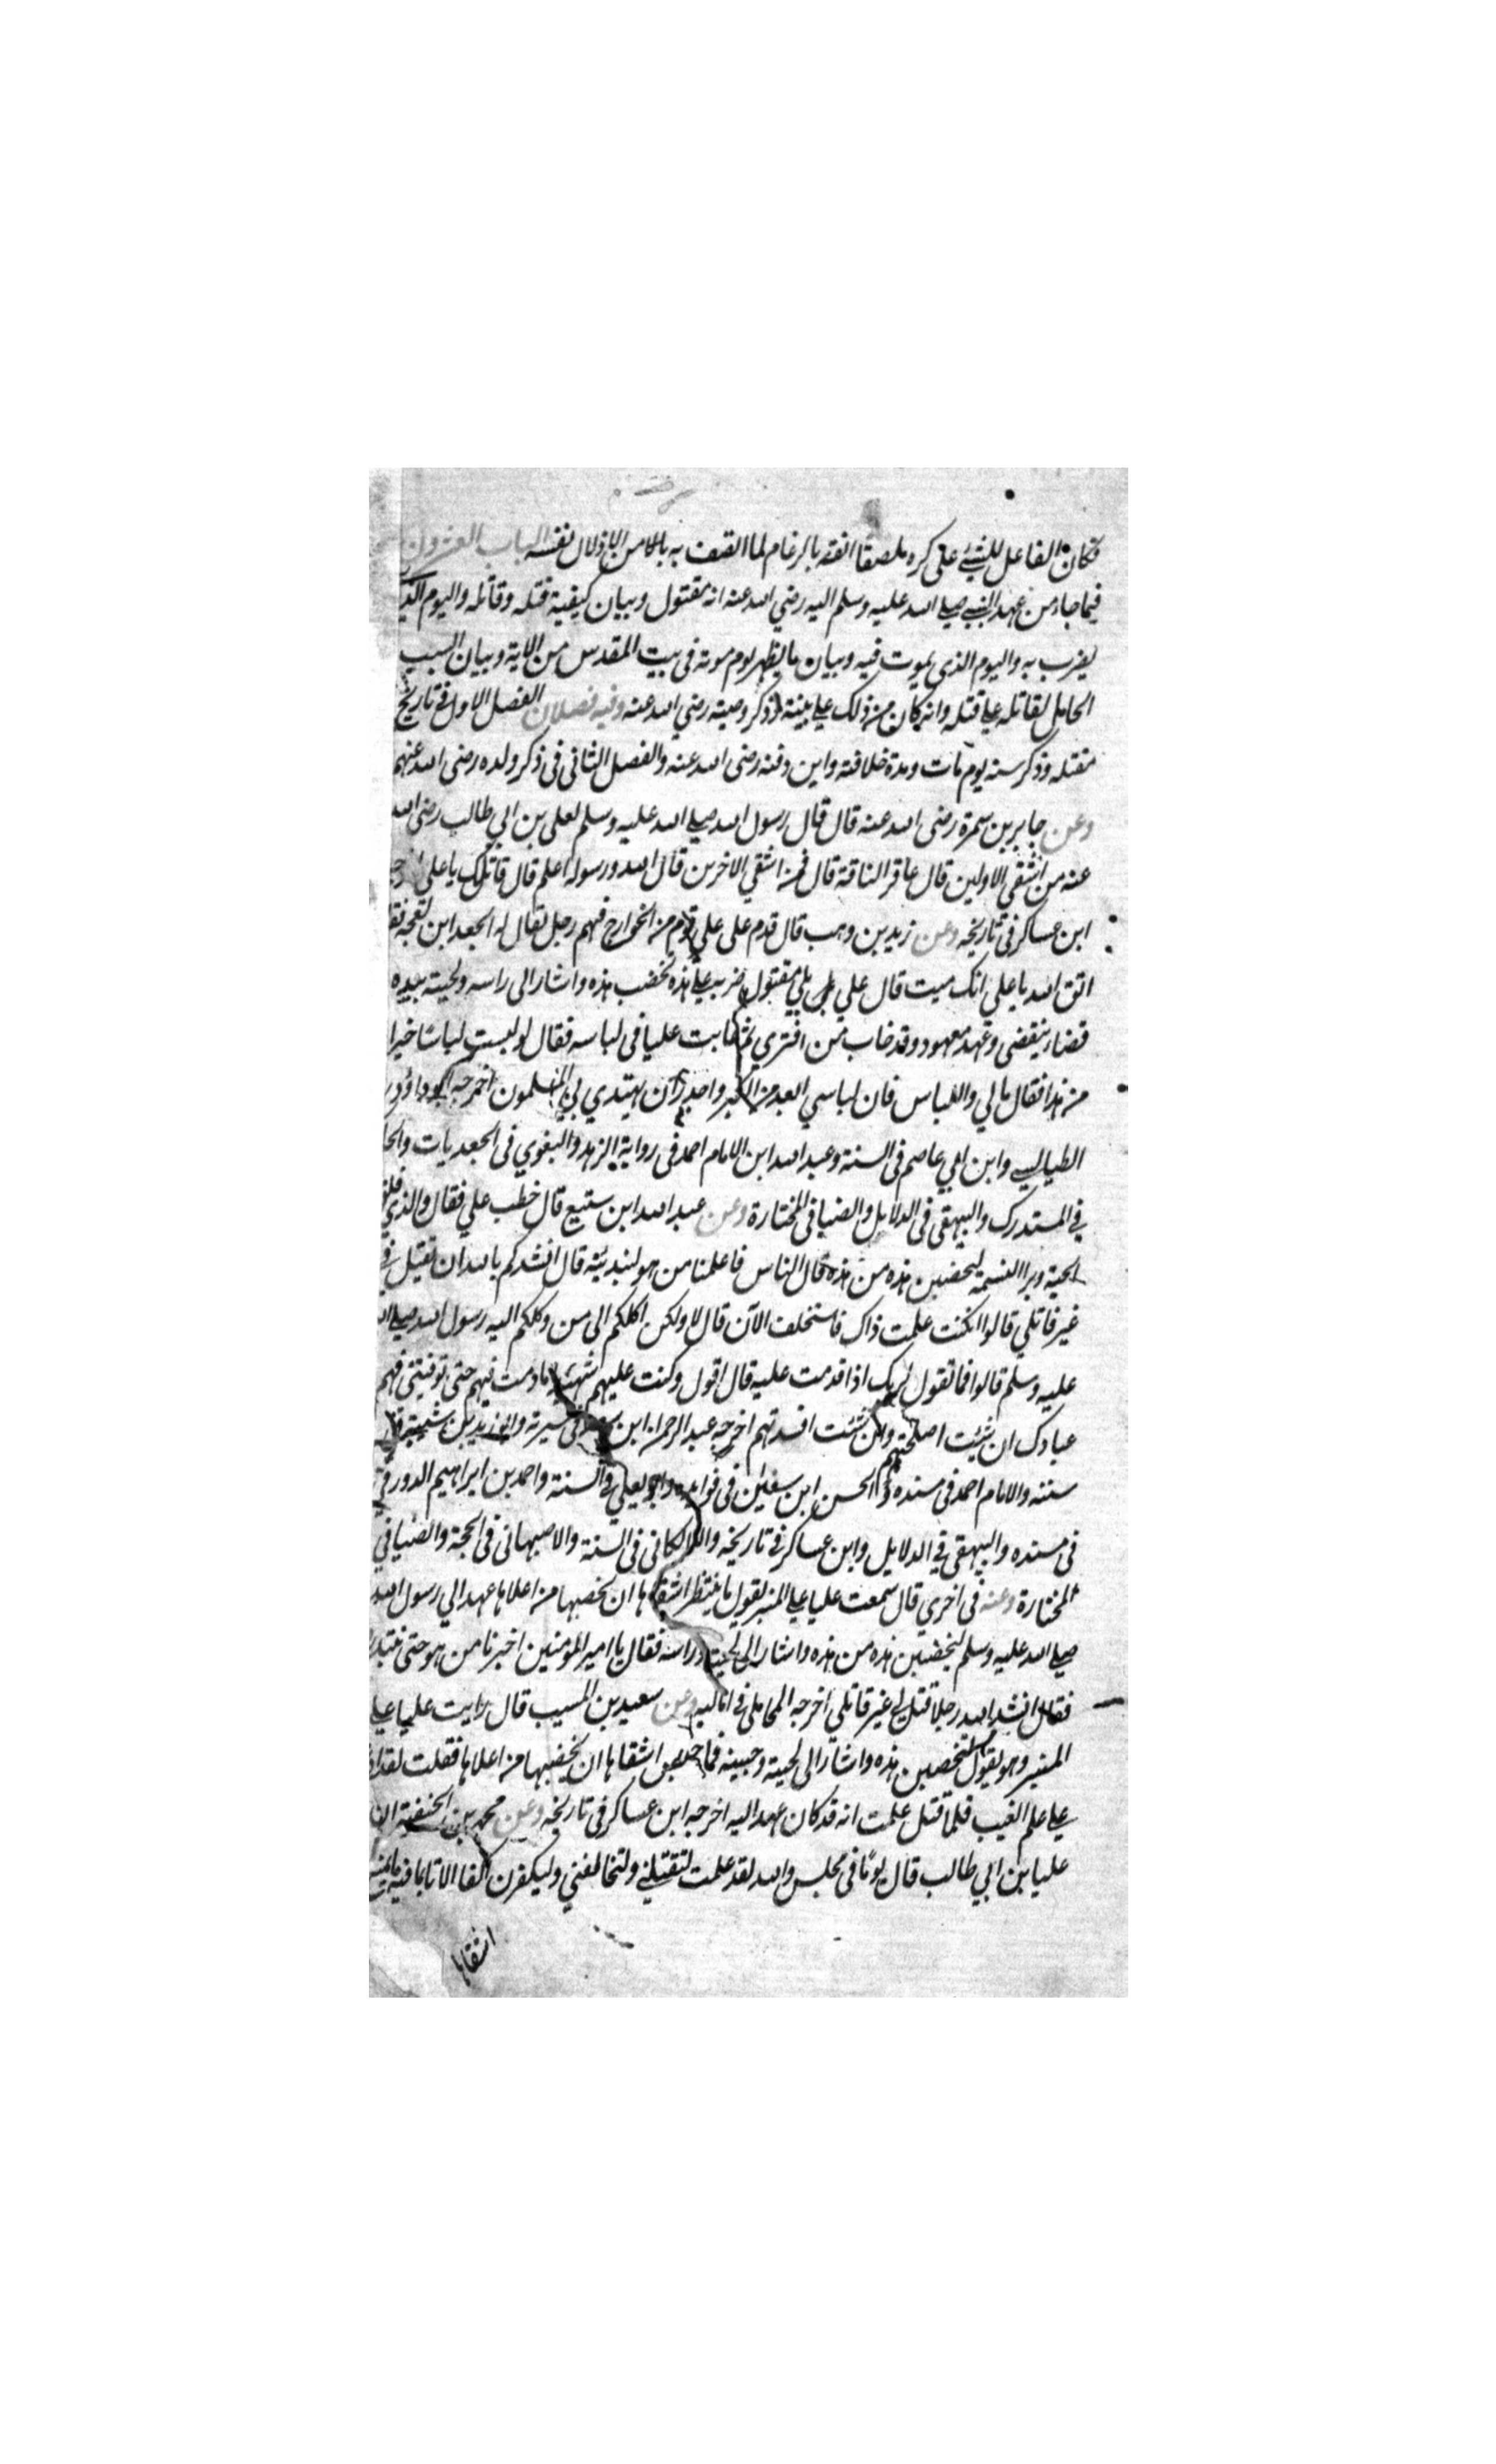 فكان الفاعل للشيئ على كره ملصقا انفه بالرغام لما اتصف به باطلا من اذلال نفسه الباب العشرون
فيما جاء من عهد النبي صلى الله عليه وسلم اليه رضي الله عنه انه مقتول وبيان كيفية قتله وقاتله واليوم الذي
يضرب به واليوم الذي يموت فيه وبيان ما يظهر يوم موته في بيت المقدس من الاية وبيان السبب
الحامل لقاتله على قتله وانه كان من ذلك على بينة وذكر وصيته رضي الله عنه وفيه فصلان الفصل الاول في تاريخ
مقتله وذكر سنه يوم مات ومدة خلافته واين دفنه رضى الله عنه والفصل الثاني في ذكر ولده رضى الله عنهم
وعن جابر بن سمرة رضى الله عنه قال قال رسول الله صلى الله عليه وسلم لعلى بن ابي طالب رضى الله
عنه من اشقي الاولين قال عاقر الناقة قال فمن اشقي الاخرين قال الله ورسوله اعلم قال قاتلك يا علي
ابن عساكر في تاريخه وعن زيد بن وهب قال قدم على علي قوم من الخوارج فيهم رجل يقال له الجعد ابن نعجه
اتق الله يا علي انك ميت قال علي بل مقتول ضربة على هذه تخضب هذه واشار الى راسه ولحيته بيده
قضاء يقضى وعهد معهود وقد خاب من افتري ثم عابت عليا في لباسه فقال لو لبست لباسا خيرا
من هذا فقال مالي واللباس فان لباسي ابعد من الكبر واجدر ان يهتدي بي المسلمون اخرجه ابو داؤد
الطيالسي وابن ابي عاصم في السنة وعبد الله ابن الامام احمد في رواية الزهد والبغوي في الجعديات والحا
في المستدرك والبيهقي في الدلايل والضيا في المختارة وعن عبد الله ابن سبيع قال خطب علي فقال والذي فلق
الحبة وبرا النسمة لتخضبن هذه من هذه قال الناس فاعلمنا من هو لنبديئه قال انشدكم بالله ان تقتل بي
غير قاتلي قالوا ان كنت علمت ذاك فاستخلف الآن قال لا ولكن اكلكم الى من وكلكم اليه رسول الله صلى الله
عليه وسلم قالوا فما تقول لربك اذا قدمت عليه قال اقول وكنت عليهم شهيدا ما دمت فيهم حتى توفيتني فهم
عبادك ان شئت اصلحتهم وان شئت افسدتهم اخرجه عبد الرحمن ابن سعد في سيرته
سننه والامام احمد في مسنده والحسن ابن سفيان في فوايده وابو يعلي في السنة واحمد بن ابراهيم الدورقي
في مسنده والبيهقي في الدلايل وابن عساكر في تاريخه واللالكائي في السنة والاصبهاني في الحجة والضيا في
المختارة وعنه في اخري قال سمعت عليا على المنبر يقول ما ينتظر اشقاها ان يخضبها من اعلاها عهد الي رسول الله
صلى الله عليه وسلم لتخضبن هذه من هذه واشار الى لحيته وراسه فقال يا امير المومنين اخبرنا من هو حتى نبتدر
فقال انشد الله رجلا قتل لي غير قاتلي اخرجه المحاملي في اماليه وعن سعيد بن المسيب قال رايت عليا على
المنبر وهو يقول لتخضبن هذه واشار الى لحيته وجبينه فما حبس اشقاها ان يخضبها من اعلاها فقلت لقد
على علم الغيب فلما قتل علمت انه قد كان عهد اليه اخرجه ابن عساكر في تاريخه وعن محمد بن الحنفية ان
عليا بن ابي طالب قال يوما في مجلس والله لقد علمت لتقتلني ولتخالفني وليكفرن
اشقاها